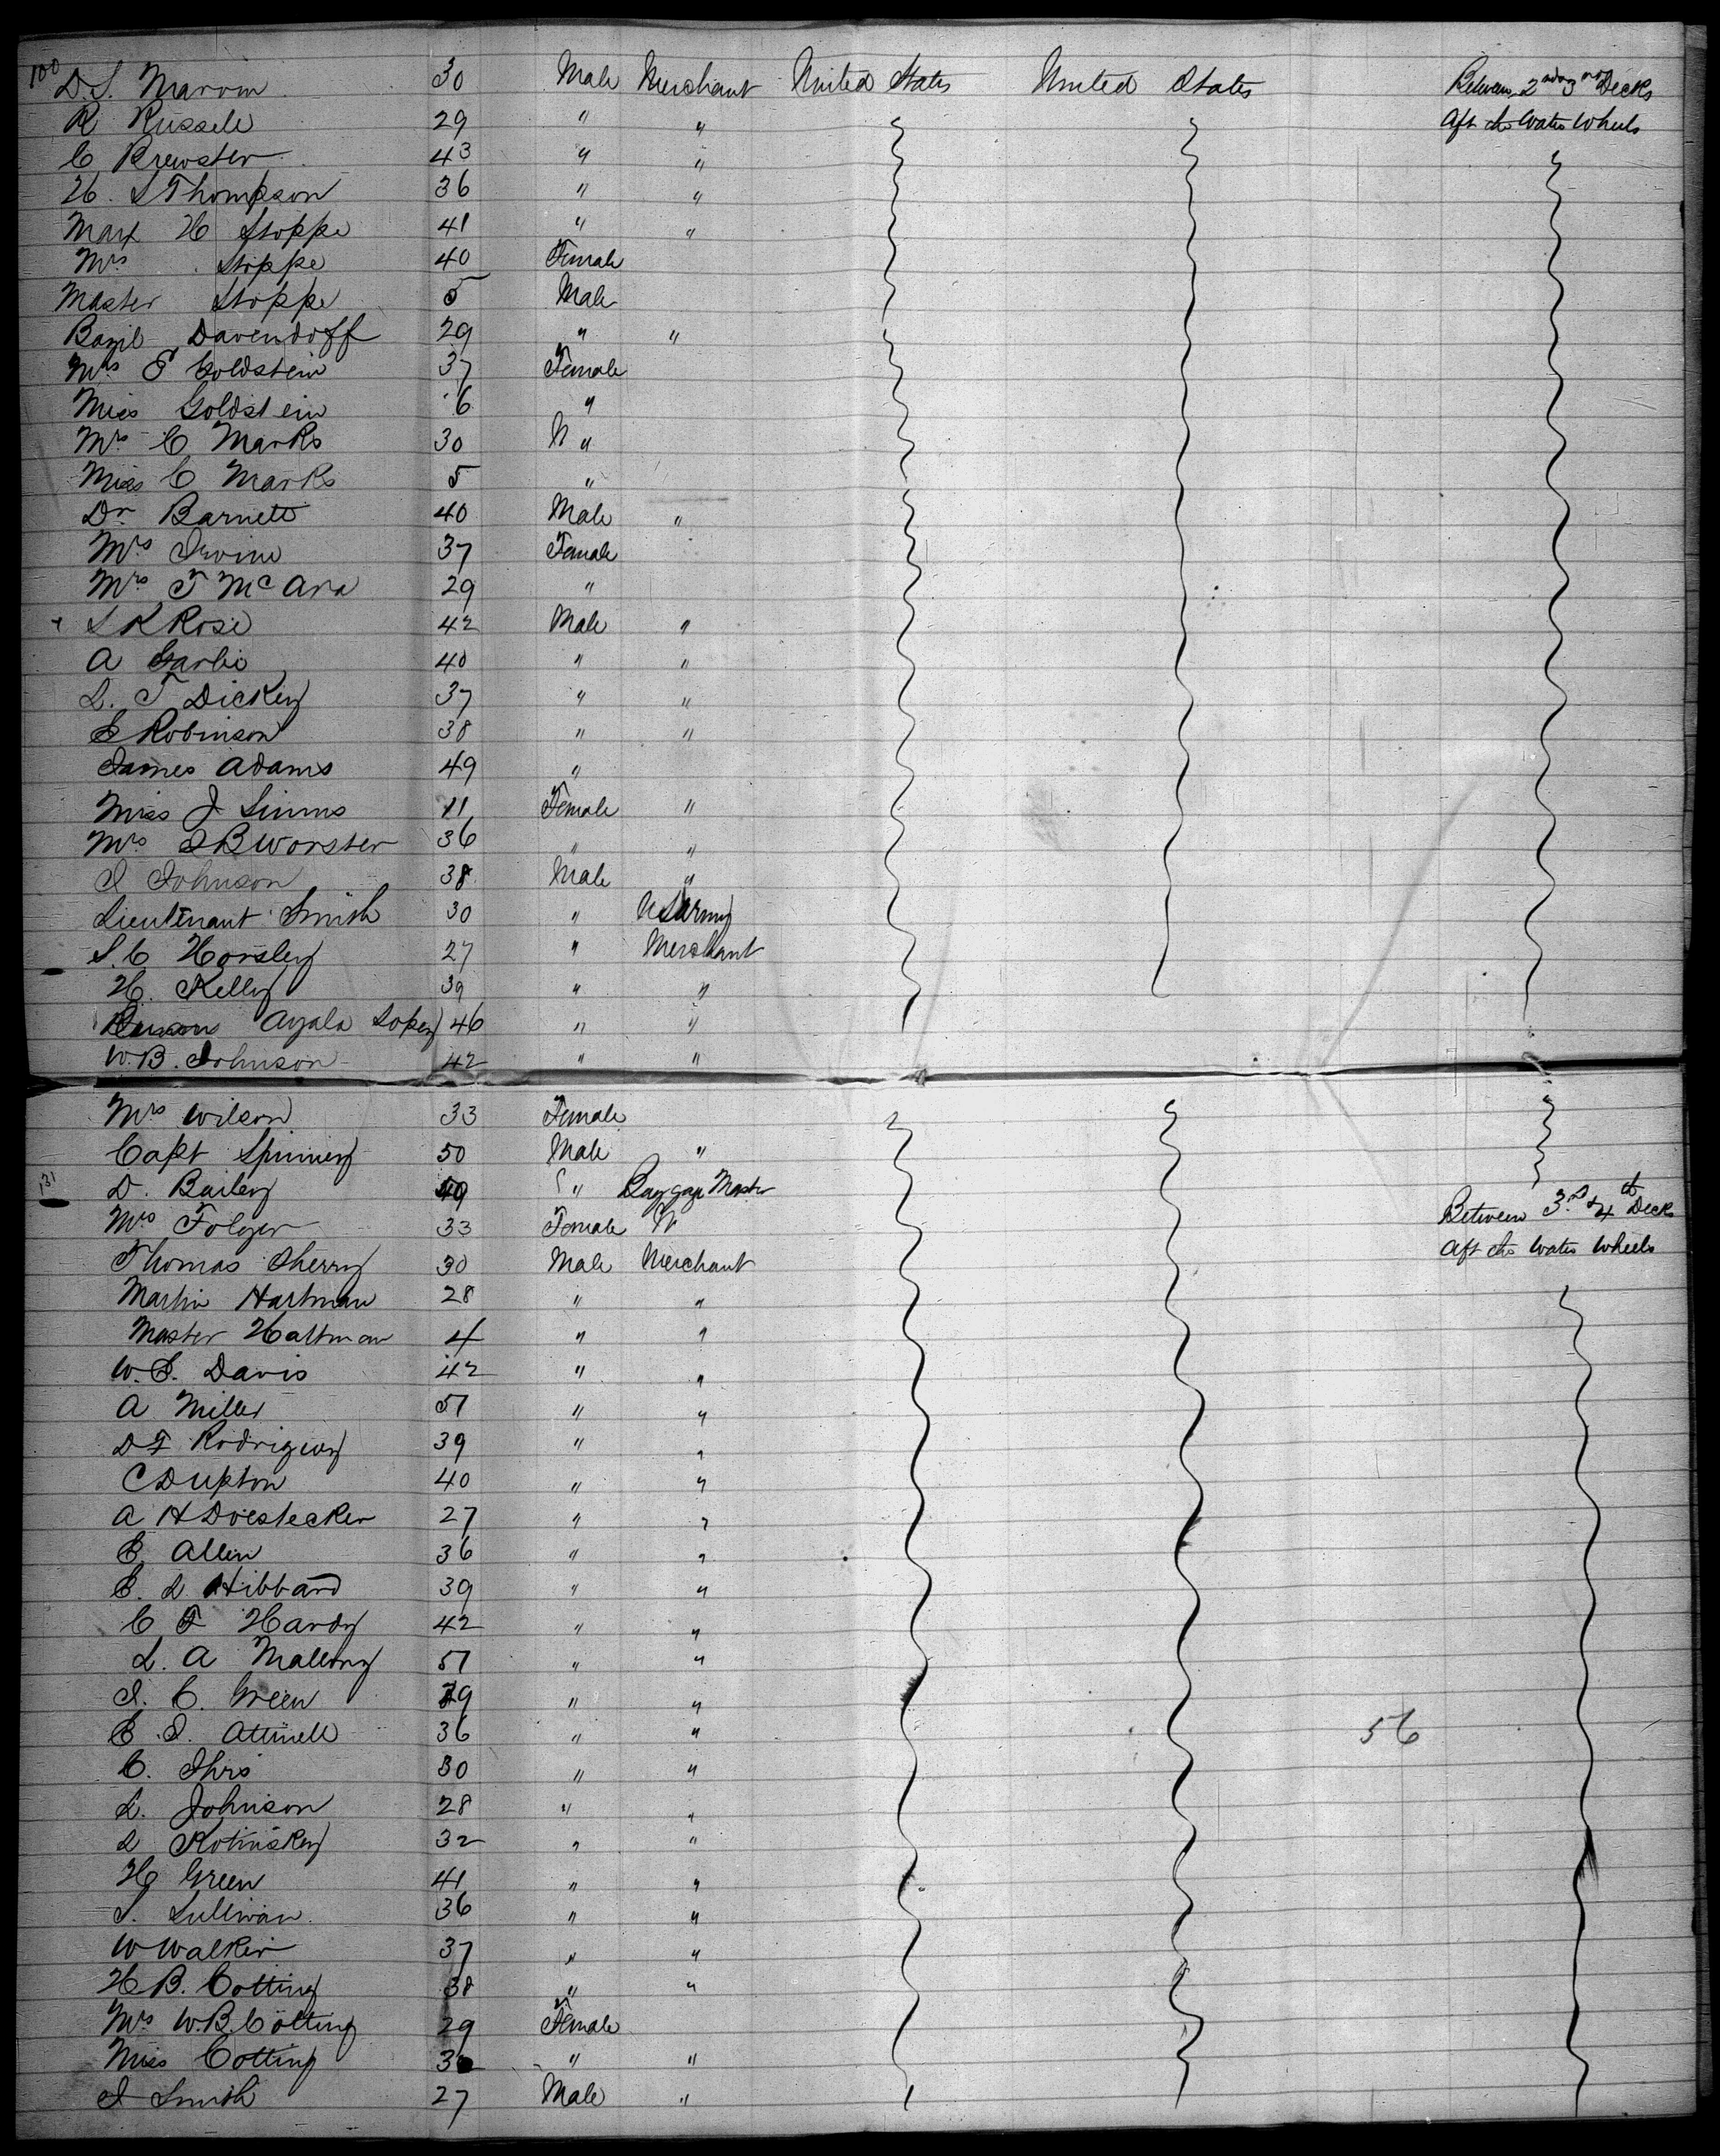 100 D. S. Marvin 30 Male Merchant United States United States Between 2nd & 3rd Decks
R Russell 29 " " Aft the Water Wheels
C Brewster 43 " "
H. S Thompson 36 " "
Max H Stoppe 41 " "
Mrs Stoppe 40 Female
Master Stoppe 5 Male
Bazil Davendoff 29 " "
Mrs E Goldstein 37 Female
Miss Goldstein 6 "
Mrs C Marks 30 "
Miss C Marks 5 "
Dr Barnett 40 Male "
Mrs Irvine 37 Female
Mrs T McAra 29 "
S K Rose 42 Male "
A Garlic 40 " "
L. T Dickey 37 " "
E Robinson 38 " "
James Adams 49 "
Miss J Simms 11 Female "
Mrs I B Worster 36 " "
J Johnson 38 Male "
Lieutenant Smith 30 " US Army
S. C Horsley 27 " Merchant
H. Kelly 39 " "
Ayala Lopez 46 " "
W. B. Johnson 42 " "
Mrs Wilson 33 Female
Capt Spinney 50 Male "
131 D. Bailey 49 " Baggage Master
Mrs Folger 33 Female Between 3rd & 4th Decks
Thomas Sherry 30 Male Merchant Aft the Water Wheels
Martin Hartman 28 " "
Master Haltman 4 " "
W. S. Davis 42 " "
A Miller 51 " "
D F Rodriguez 39 " "
C D Upton 40 " "
A H Doestecker 27 " "
E Allen 36 " "
E. L Hibbard 39 " "
C F Hardy 42 " "
L. A Mallory 51 " "
J. C. Green 39 " "
E. J. Attinell 36 " " 56
C. Ihrs 30 " "
L. Johnson 28 " "
L Kotinskey 32 " "
H Green 41 " "
S. Sullivan 36 " "
W Walker 37 " "
H B. Cotting 38 " "
Mrs W. B. Cotting 29 Female
Miss Cotting " "
J Smith 27 Male "